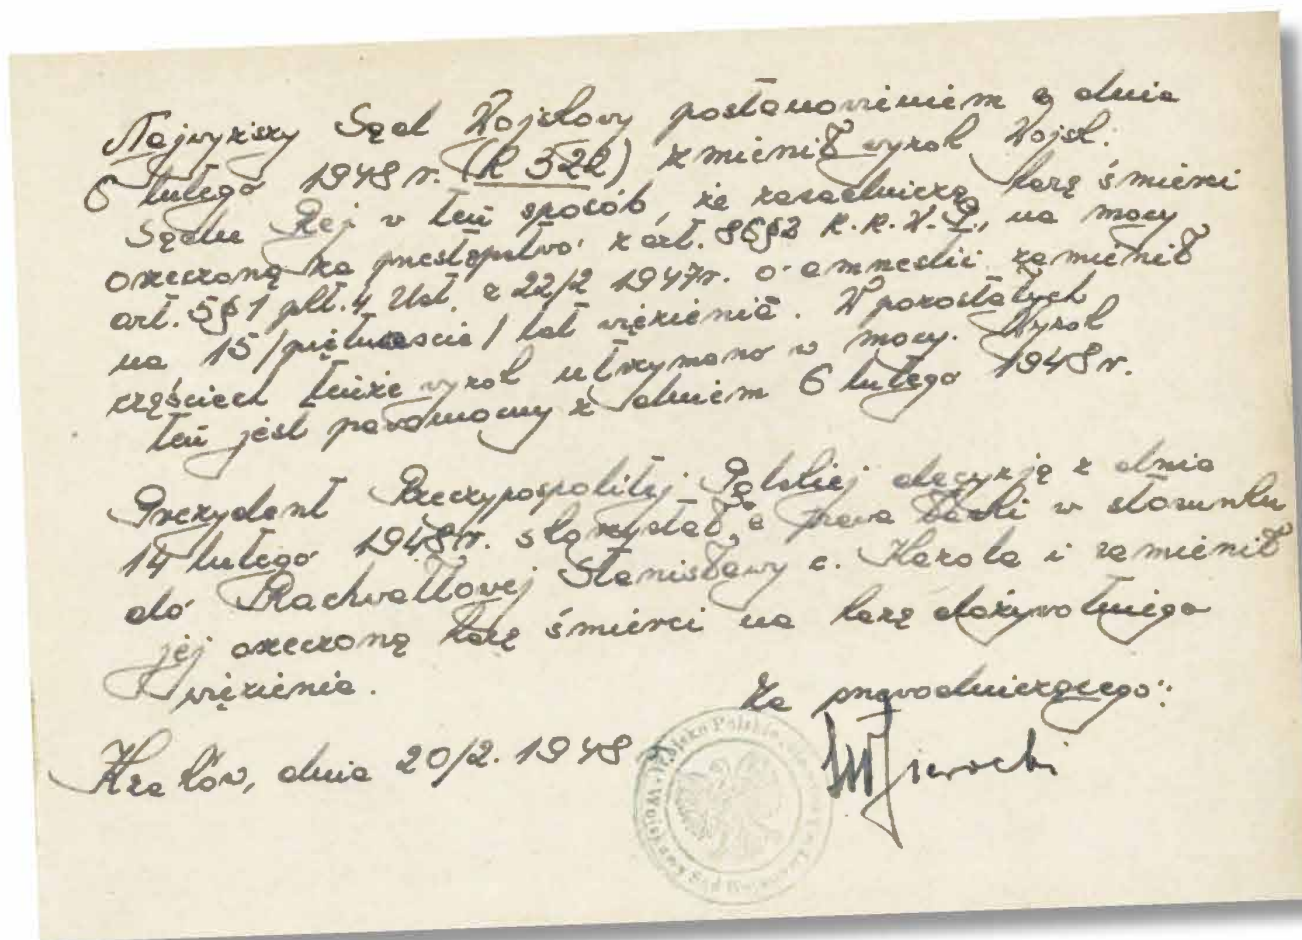 Najwyższy Sąd Wojskowy postanowieniem z dnia
6 lutego 1948 r. (R 522) zmienił wyrok Wojsk.
Sądu Rej w ten sposób, że zasadniczą karę śmierci
orzeczoną za przestępstwo z art. 86§2 K.K.W.P., na mocy
art. 5§1 pkt. 4 Ust. z 22/2 1947r. o amnestii zamienił
na 15 /piętnaście/ lat więzienia. W pozostałych
częściach tenże wyrok utrzymano w mocy. Wyrok
ten jest prawomocny z dniem 6 lutego 1948 r.
Prezydent Rzeczypospolitej Polskiej decyzją z dnia
14 lutego 1948r. skorzystał z prawa łaski w stosunku
do Rachwałłowej Stanisławy c. Karola i zamienił
jej orzeczoną karę śmierci na karę dożywotniego
więzienia.
Za przewodniczącego:
Kraków, dnia 20/2. 1948
Wojsko Polskie